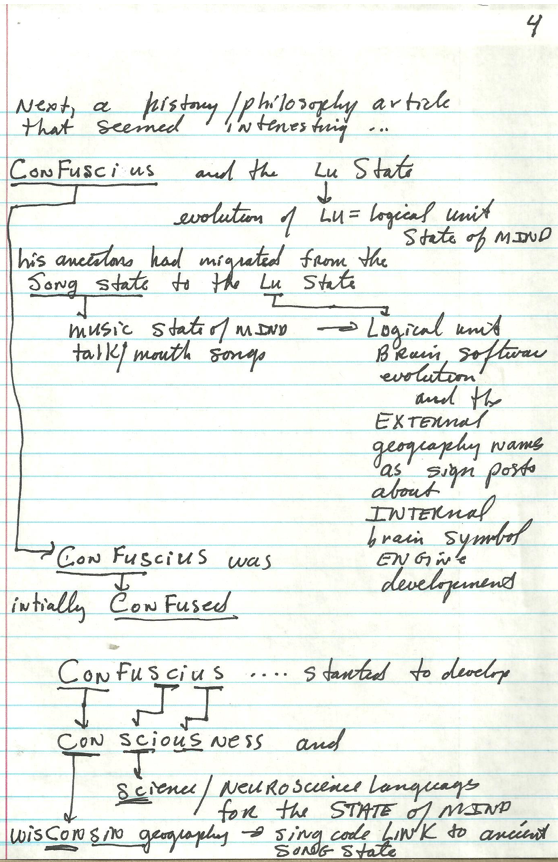 4
Next, a history/philosophy article
that seemed interesting ...
ConFuscius and the Lu State
evolution of Lu = logical unit
State of MIND
his ancestors had migrated from the
Song state to the Lu State
music state of MIND → Logical unit
talk/mouth songs
Brain, software
evolution
and the
EXTERNAL
geography names
as sign posts
about
INTERNAL
brain symbol
ENGINE
developments
ConFuscius was
intially ConFused
ConFuscius .... started to develop
Con scious ness and
science / NEUROscience Languages
for the STATE of MIND
wisConsin geography → sing code LINK to ancient
SONG State